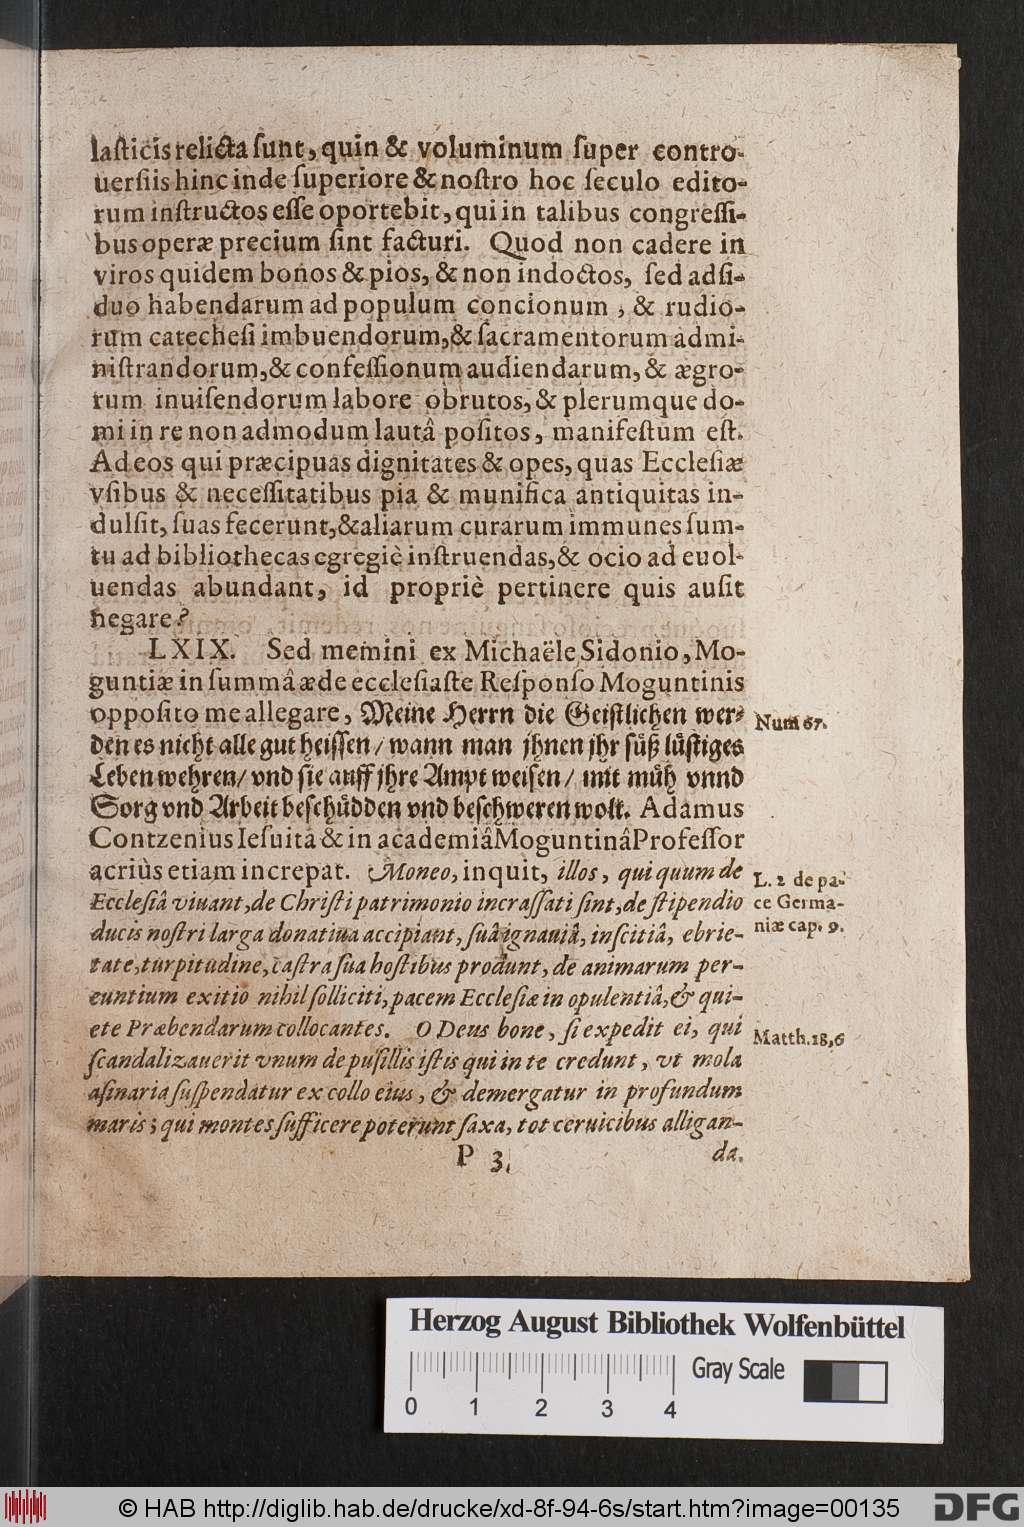 laſticis relicta ſunt, quin & voluminum ſuper contro-
uerſiis hinc inde ſuperiore & noſtro hoc ſeculo edito-
rum inſtructos eſſe oportebit, qui in talibus congreſſi-
bus operæ precium ſint facturi. Quod non cadere in
viros quidem bonos & pios, & non indoctos, ſed adſi-
duo habendarum ad populum concionum, & rudio-
rum catecheſi imbuendorum, & ſacramentorum admi-
niſtrandorum, & confeſſionum audiendarum, & ægro-
rum inuiſendorum labore obrutos, & plerumque do-
mi in re non admodum lautâ poſitos, manifeſtum eſt.
Ad eos qui præcipuas dignitates & opes, quas Eccleſiæ
vſibus & neceſſitatibus pia & munifica antiquitas in-
dulſit, ſuas fecerunt, & aliarum curarum immunes ſum-
tu ad bibliothecas egregiè inſtruendas, & ocio ad euol-
uendas abundant, id propriè pertinere quis auſit
negare?
LXIX. Sed memini ex Michaële Sidonio, Mo-
guntiæ in ſummâ æde eccleſiaſte Reſponſo Moguntinis
oppoſito me allegare, Meine Herrn die Geiſtlichen wer-
den es nicht alle gut heiſſen/ wann man jhnen jhr ſüß lüſtiges
Leben wehren/ vnd ſie auff jhre Ampt weiſen/ mit müh vnnd
Sorg vnd Arbeit beſchüdden vnd beſchweren wolt. Adamus
Contzenius Ieſuita & in academiâ Moguntinâ Profeſſor
acriùs etiam increpat. Moneo, inquit, illos, qui quum de
Eccleſiâ viuant, de Chriſti patrimonio incraſſati ſint, de ſtipendio
ducis noſtri larga donatiua accipiant, ſuâ ignauiâ, inſcitiâ, ebrie-
tate, turpitudine, caſtra ſua hoſtibus produnt, de animarum per-
euntium exitio nihil ſolliciti, pacem Eccleſiæ in opulentiâ, & qui-
ete Præbendarum collocantes. O Deus bone, ſi expedit ei, qui
ſcandalizauerit vnum de puſillis iſtis qui in te credunt, vt mola
aſinaria ſuſpendatur ex collo eius, & demergatur in profundum
maris; qui montes ſufficere poterunt ſaxa, tot ceruicibus alligan-
P 3.
da.
Num 67.
L. 2 de pa-
ce Germa-
niæ cap. 9.
Matth. 18, 6
Herzog August Bibliothek Wolfenbüttel
0 1 2 3 4
Gray Scale
© HAB http://diglib.hab.de/drucke/xd-8f-94-6s/start.htm?image=00135
DFG